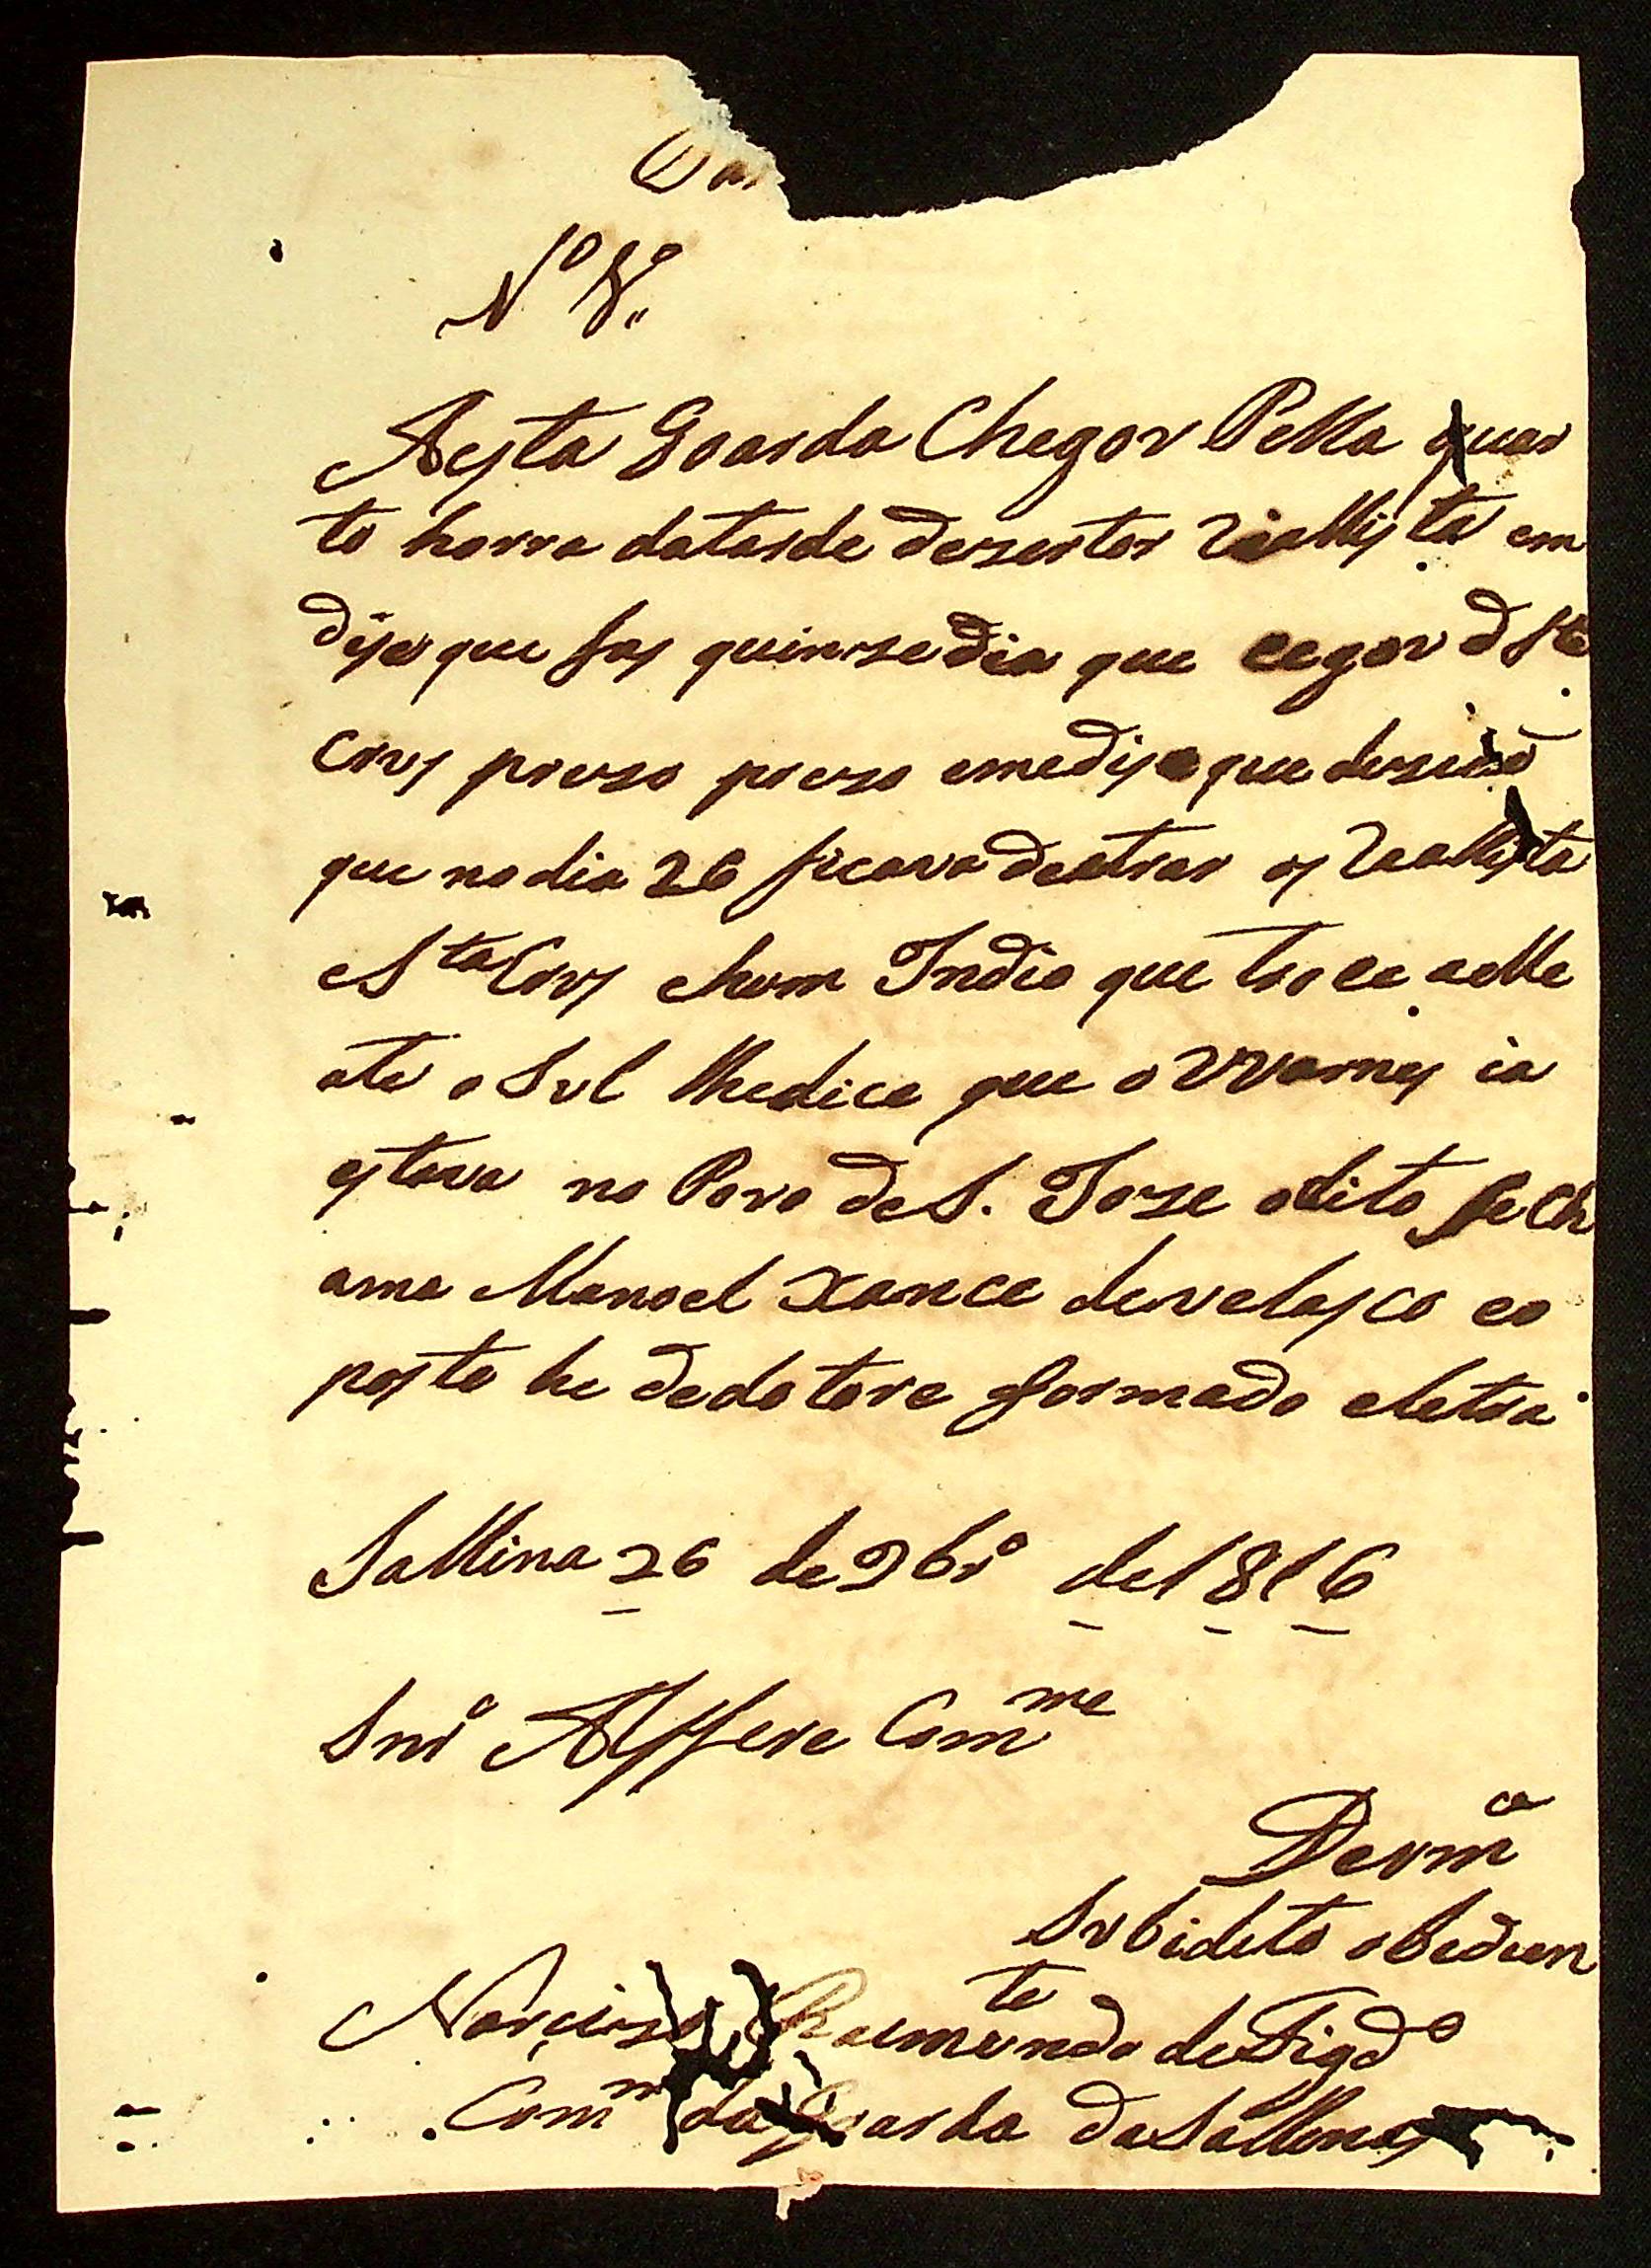 Nº 8º
Aesta Goarda Chegov Pella quar
to horra datarde dezertor Riallista em
dise que fas quinze dia que cegov d Sta
Crvs prezo prezo emedise que
que no dia 26 ficava dentrar os Riallista
eSta Crvs ehum Indio que troce aelle
ate o Svl lhedice que o VVarnes ia
estava no Povo de S. Joze odito se Ch
ama Manoel Xance develasco eo
posto he dedotore formado eletra
Sallina 26 de 9brº de 1816
Snrº Alffere Comme
De vmce
Svbidito obedien
te
Narcizo Raimundo de Figdº
Comme da Goarda da Sallinas